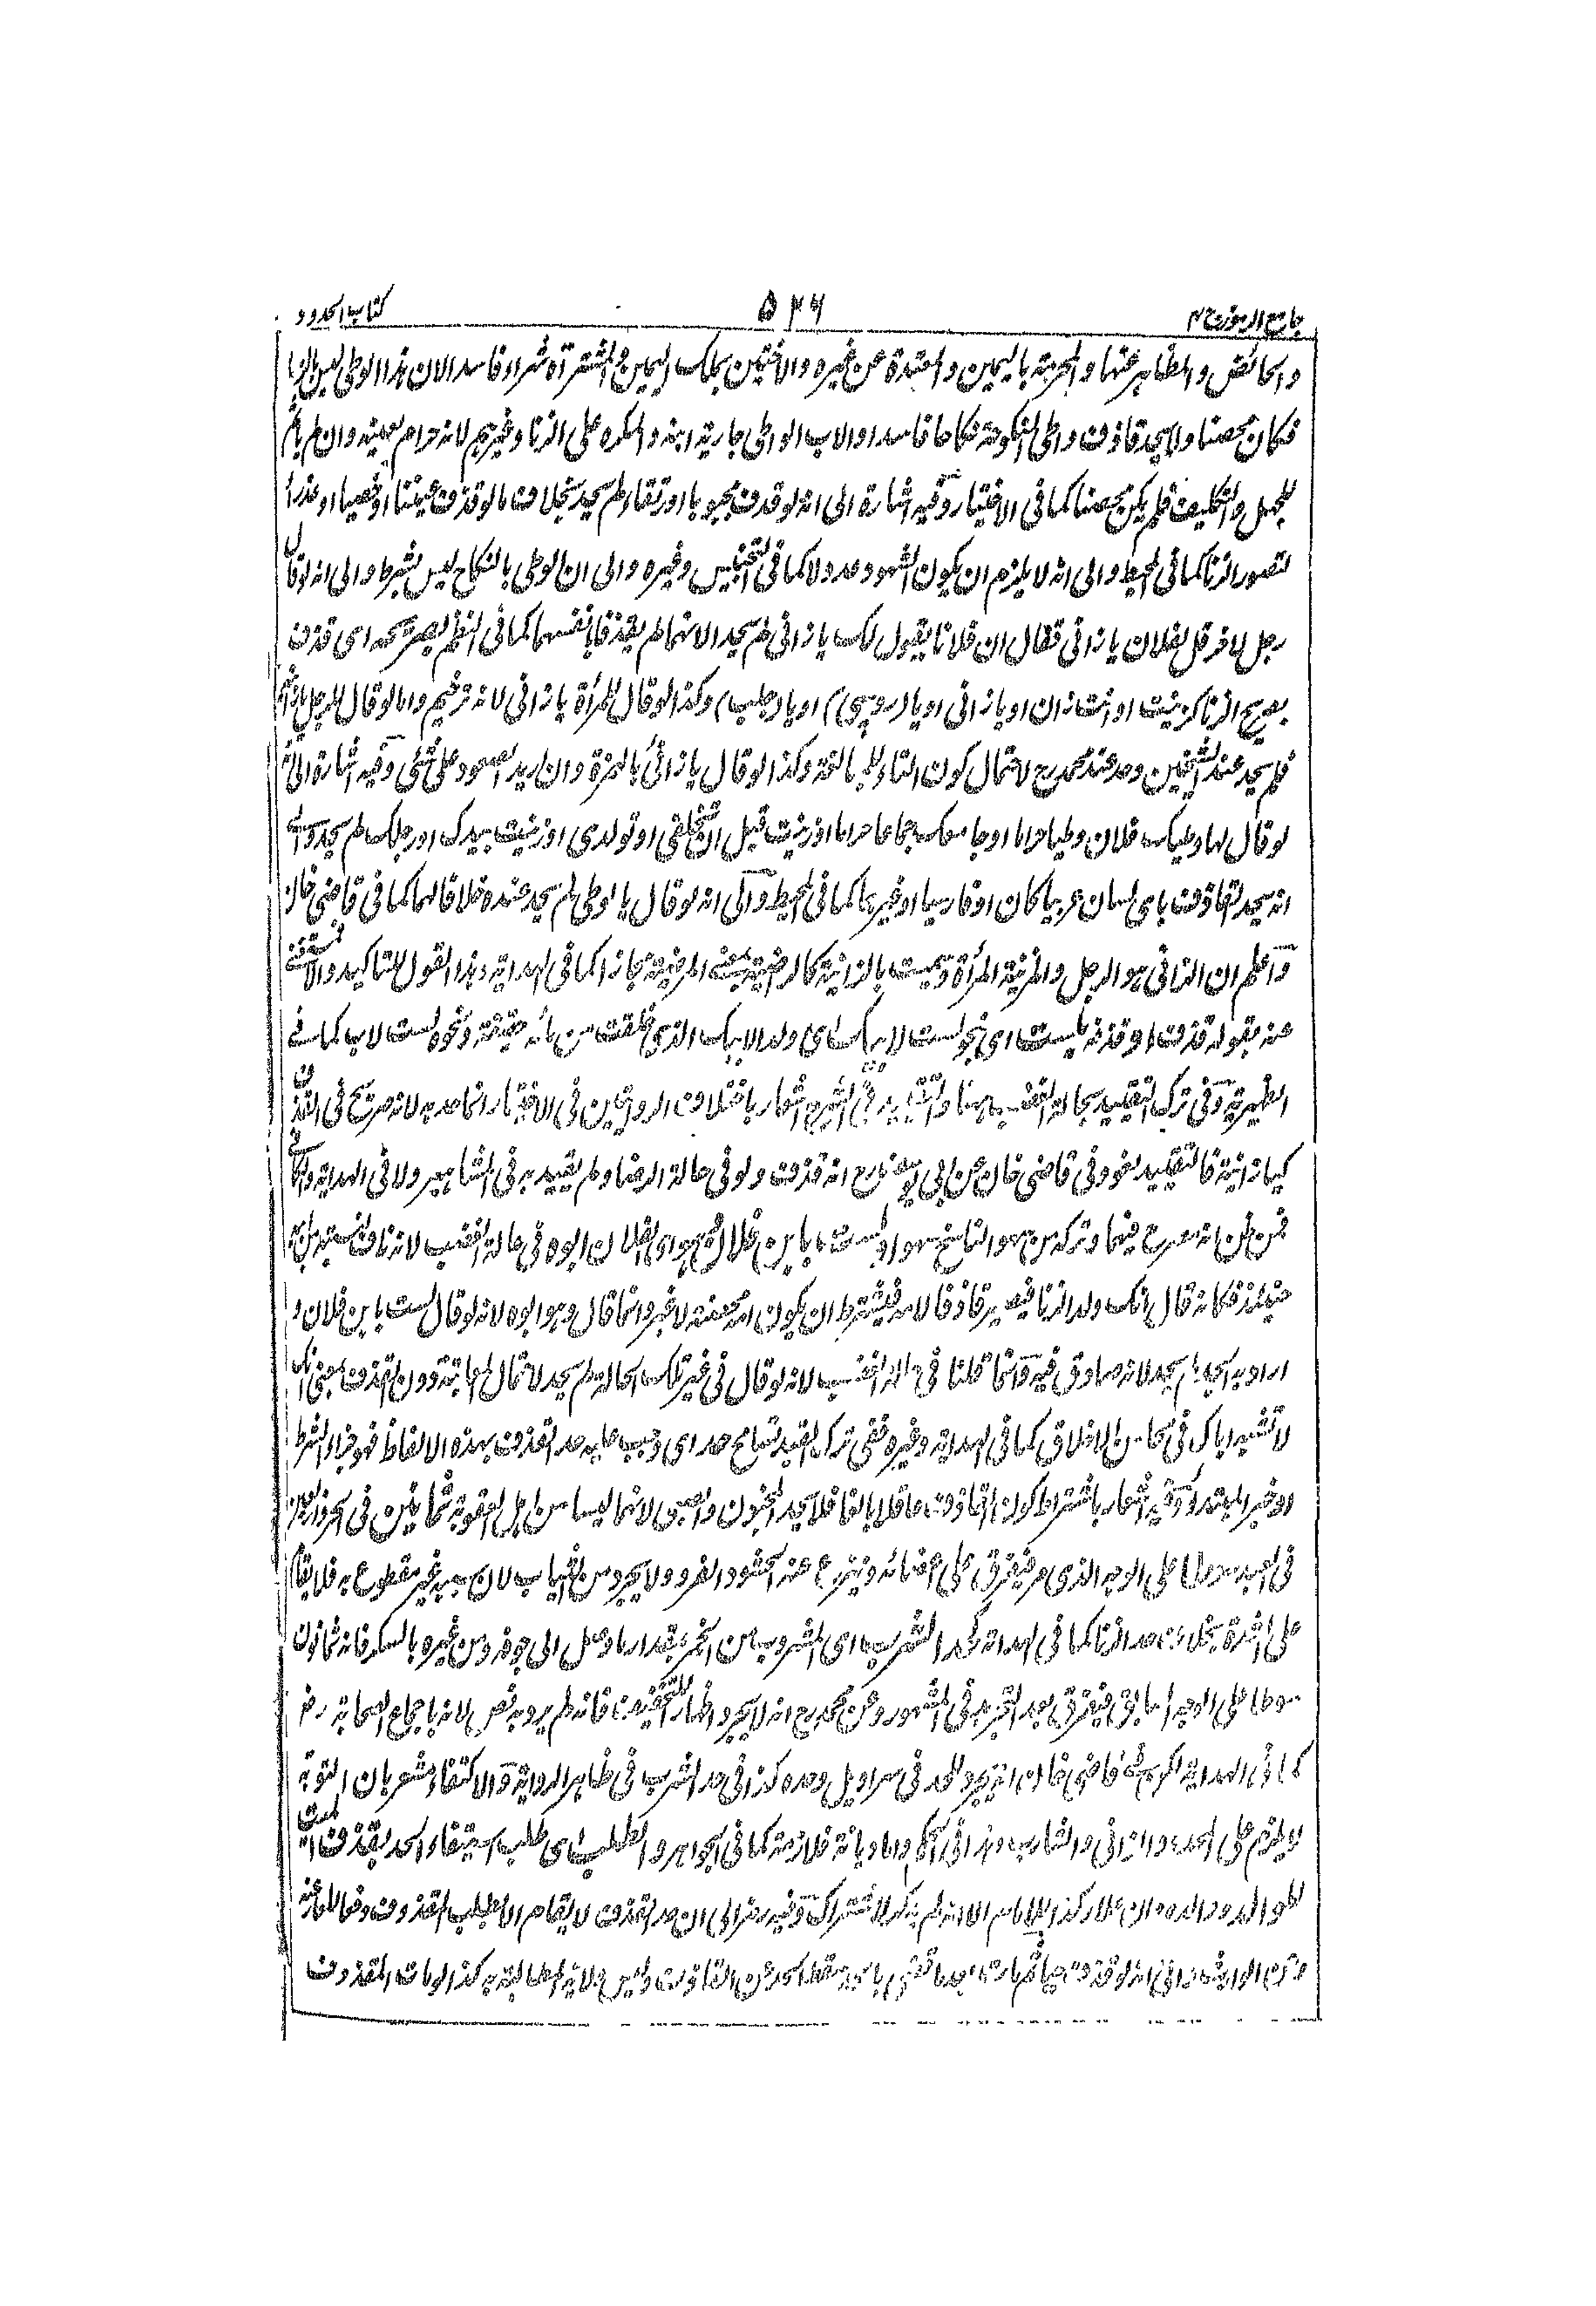 جامع الرموز ج ٢ ٥٢٦ كتاب الحدود
والحائض والمظاهر عنها والمحرمة باليمين والمعتدة عن غيره والاختين بملك اليمين والمشتراة شراء فاسدا لان هذا الوطى ليس بالزنا
فكان محصنا ولا يحد قاذف واطى المنكوحة نكاحا فاسدا والاب الواطى جارية ابنه والمكره على الزنا وغيرهم لانه حرام لعينه وان لم ياثم
للجهل والتكليف فلم يكن محصنا كما فى الاختيار وفيه اشارة الى انه لو قذف مجبوبا او رتقاء لم يحد بخلاف ما لو قذف عنينا او خصيا او عذراء
لتصور الزنا كما فى المحيط والى انه لا يلزم ان يكون الشهود عدولا كما فى التجنيس وغيره والى ان الوطى بالنكاح ليس بشرط والى انه لو قال
رجل لاخر قل لفلان يا زانى فقال ان فلانا يقول لك يا زانى لم يحد الانهما لم يقذفا بانفسهما كما فى النظم بصريحه اى قذف
بصريح الزنا كزنيت او انت زان او يا زانى او يا (روسپى) او يا (جلب) وكذا لو قال للمرأة يا زانى لانه ترخيم واما لو قال للرجل يا زانية
فلم يحد عند الشيخين وحد عند محمد رح لاحتمال كون التاء للمبالغة وكذا لو قال يا زانئ بالهمزة وان يريد الصعود على شئ وفيه اشارة الى انه
لو قال لها وطيك فلان وطيا حراما او جامعك جماعا حراما او زنيت قبل ان تخلقى او تولدى او زنيت بيدك او رجلك لم يحد والى
انه يحد القاذف باى لسان عربيا كان او فارسيا او غيرهما كما فى المحيط والى انه لو قال يا لوطى لم يحد عنده خلافا لهما كما فى قاضى خان
واعلم ان الزانى هو الرجل والمزنية المرأة وسميت بالزانية كالراضية بمعنى المرضية مجازا كما فى الهداية وهذا القول للتاكيد والا لاستغنى
عنه بقوله قذف او قذفه بلست اى بنحو لست لابيك اى ولد الابيك الذى خلقت من مائه حقيقة ونحوه لست لاب كما فى
الظهيرية وفى ترك التقييد بحالة الغضب ههنا والتقييد فى الشرح اشعار باختلاف الروايتين فى الاختيار انما حد به لانه صريح فى القذف
كيا زانية فالتقييد لغو وفى قاضى خان عن ابى يوسف رح انه قذف ولو فى حالة الرضا ولم يقيد به فى المشاهير ولا فى الهداية والكافى
فمن ظن انه مصرح فيهما وتركه من سهو الناسخ سهوا ولست بابن فلان وهو اى الفلان ابوه فى حالة الغضب لانه
حينئذ فكانه قال انك ولد الزنا فيصير قاذفا لامه فيشترط ان يكون امه محصنة لا غير وانما قال وهو ابوه لانه لو قال لست بابن فلان و
اراد به الجد لم يحد لانه صادق فيه وانما قلنا فى حالة الغضب لانه لو قال فى غير تلك الحالة لم يحد لاحتمال المعاتبة دون القذف بمعنى انك
لا تشبه اباك فى محاسن الاخلاق كما فى الهداية وغيره ففى ترك القيد تسامح حد اى وجب عليه حد القذف بهذه الالفاظ فهو جزاء الشرط
او خبر المبتدا وفيه اشعار باشتراط كون القاذف عاقلا بالغا فلا يحد المجنون والصبى لانهما ليسا من اهل العقوبة ثمانين فى الحر واربعين
فى العبد سوطا على الوجه الذى مر فيفرق على اعضائه وينزع عنه الحشو والفرو ولا يجرد من الثياب لان سببه غير مقطوع به فلا يقام
على الشدة بخلاف حد الزنا كما فى الهداية كحد الشرب اى المشروب من الخمر بقدر ما وصل الى جوفه ومن غيره بالسكر فانه ثمانون
سوطا على الوجه السابق فيفرق بعد التجريد فى المشهور وعن محمد رح انه لا يجرد اظهارا للتخفيف فانه لم يرد به نص لانه باجماع الصحابة رض
كما فى الهداية لكن فى قاضى خان انه يجرد للحد فى سراويل وحده كذا فى حد الشرب فى ظاهر الرواية والاكتفاء مشعر بان التوبة
لا يلزم على المحدود الزانى والشارب وهذا فى الحكم واما ديانة فلازمة كما فى الجواهر والطلب اى طلب استيفاء الحد بقذف الميت
للوالد والده وان علا وكذا للام الا انه لم يذكر لاشتراك وفيه رمز الى ان حد القذف لا يقام الا بطلب المقذوف وفعا للعار عنه
الوارث والى انه لو قذف حيا ثم مات بعد ما قضى سقط الحد عن القاذف وليس ولاية المطالبة به كذا لو مات المقذوف